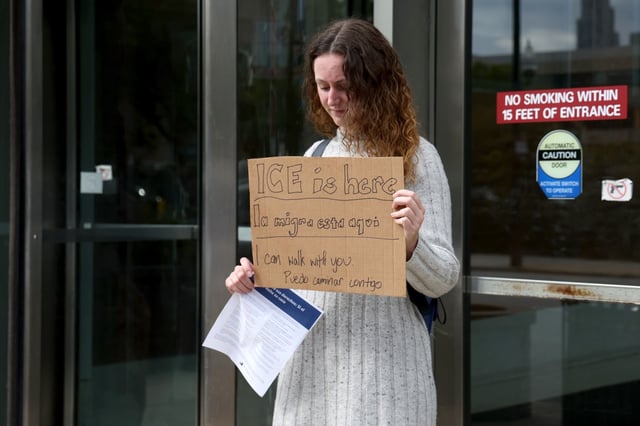 ICE is here
la migra esta aqui
I can walk with you.
Puedo caminar contigo
NO SMOKING WITHIN
15 FEET OF ENTRANCE
AUTOMATIC
CAUTION
DOOR
ACTIVATE SWITCH
TO OPERATE